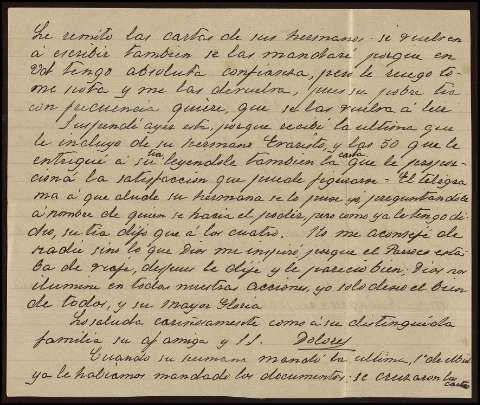 Le remito las cartas de sus hermanos - si vuelven
á escribir tambien se las mandaré porque en
Vd tengo absoluta confianza, pero le ruego to-
me nota y me las devuelva, pues su pobre tia
con frecuencia quiere, que se las vuelva á leer
Suspendí ayer esta, porque recibí la ultima que
le incluyo de su hermano Evaristo, y las 50 que le
entregué á su tia leyendole tambien la carta que le propor-
cionó la satisfacción que puede figurarse - El telegra
ma á que alude su hermana se lo puse yo, preguntandole
á nombre de quien se hacia el poder, pero como ya le tengo di-
cho, su tia dijo que á los cuatro. No me aconsejé de
nadie sino lo que Dios me inspiró porque el Parroco esta
ba de viaje, despues le dije y le pareció bien, Dios nos
ilumine en todas nuestras acciones, yo solo deseo el bien
de todos, y su mayor Gloria
Les saluda cariñosamente como á su distinguida
familia su afma amiga y S.S. Dolores
Cuando su hermano mandó la ultima, 1º de
ya le habiamos mandado los documentos - se cruzaron las cartas